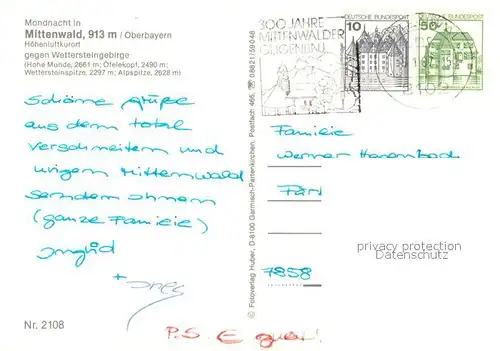 Mondnacht in
Mittenwald, 913 m / Oberbayern
Höhenluftkurort
gegen Wettersteingebirge
(Hohe Munde, 2661 m; Öfelekopf, 2490 m;
Wettersteinspitze, 2297 m; Alpspitze, 2628 m)
300 JAHRE
MITTENWALDER
GEIGENBAU
10
DEUTSCHE BUNDESPOST
50
DEUTSCHE BUNDESPOST
Schöne Grüße
aus dem total
verschneiten und
urigen Mittenwald
senden Ihnen
(ganze Familie)
Ingrid
+
© Fotoverlag Huber, D-8100 Garmisch-Partenkirchen, Postfach 466, ☎ 08821/59048
Familie
Werner
privacy protection
Datenschutz
7858
Nr. 2108
P.S.